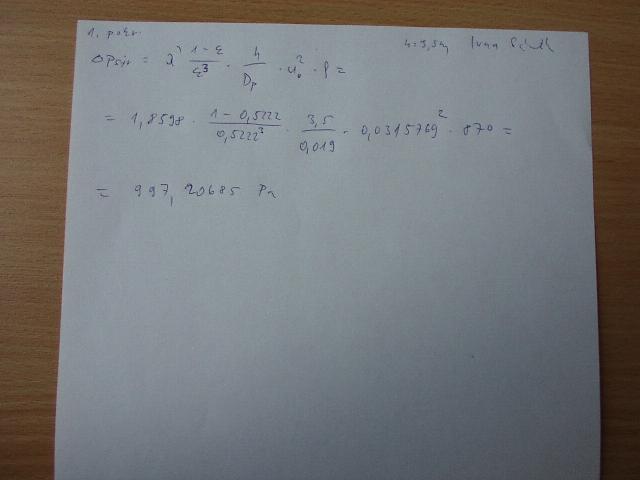 1. pokr.
h = 3,5 m
ΔPsj = λ' (1-ε)/ε³ · h/Dp · u₀² · ρ =
= 1,8598 · (1 - 0,5222)/0,5222³ · 3,5/0,019 · 0,0315769² · 870 =
= 997,20685 Pa